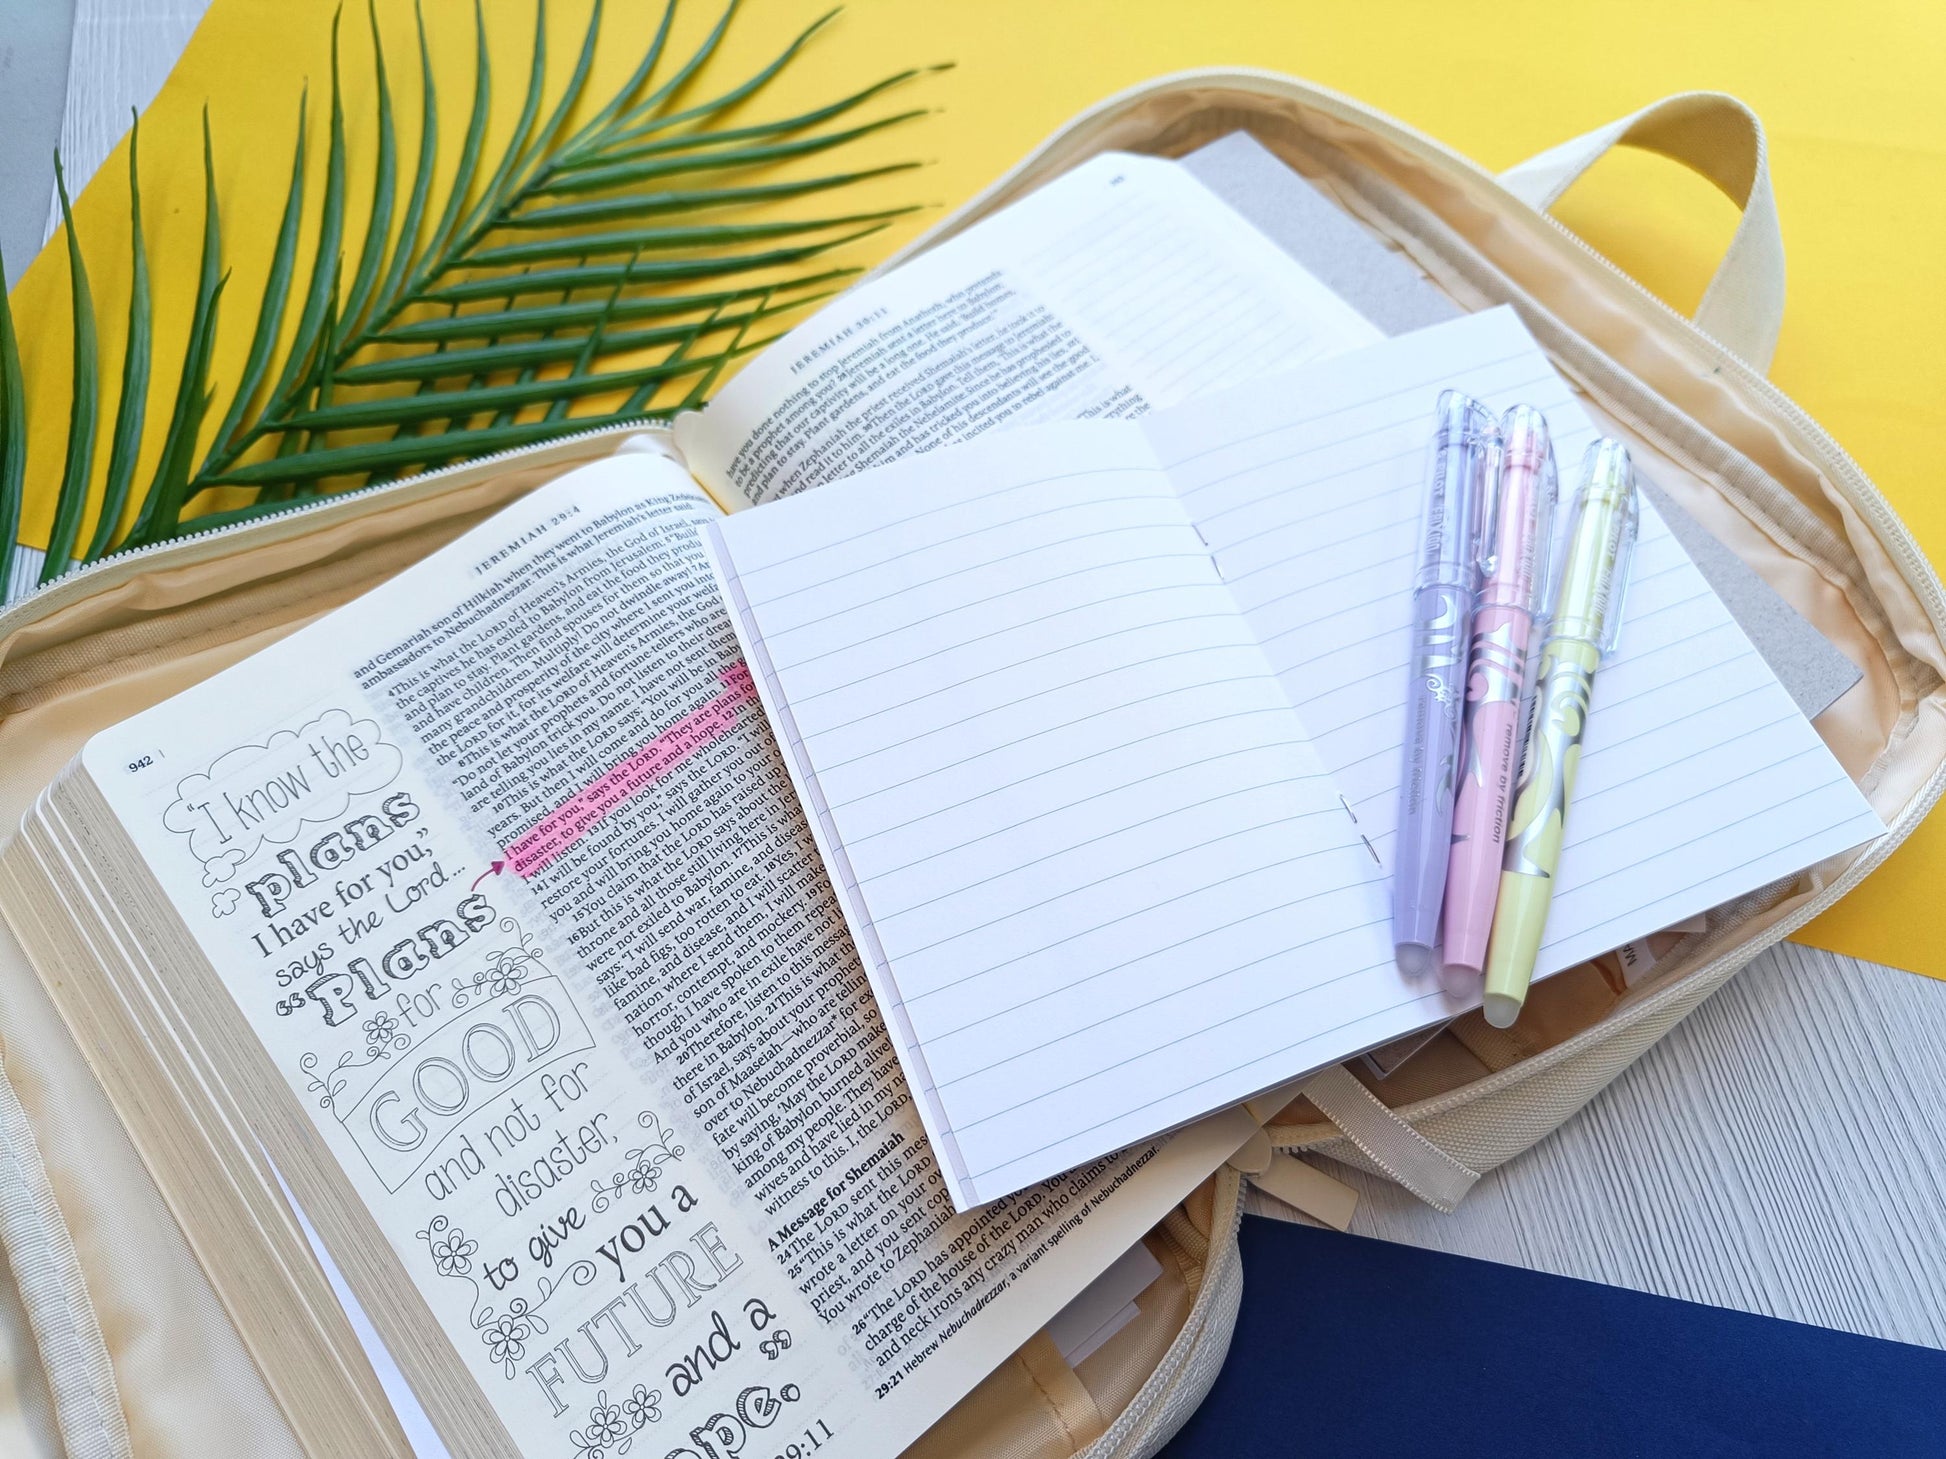 942
"I know the
plans
I have for you,"
says the Lord...
"Plans
for
GOOD
and not for
disaster,
to give
you a
FUTURE
and a
ope."
29:11
JEREMIAH 29:4
and Gemariah son of Hilkiah when they went to Babylon as King Zedekiah's
ambassadors to Nebuchadnezzar. This is what Jeremiah's letter said:
4 This is what the LORD of Heaven's Armies, the God of Israel, says
the captives he has exiled to Babylon from Jerusalem. 5 "Build
and plan to stay. Plant gardens, and eat the food they produ
and have children. Then find spouses for them so that you
many grandchildren. Multiply! Do not dwindle away! 7 An
the peace and prosperity of the city where I sent you into
the LORD for it, for its welfare will determine your welfa
8 This is what the LORD of Heaven's Armies, the God
"Do not let your prophets and fortune-tellers who are
land of Babylon trick you. Do not listen to their drea
are telling you lies in my name. I have not sent them
10 This is what the LORD says: "You will be in Baby
years. But then I will come and do for you all the g
promised, and I will bring you home again. 11 For
I have for you," says the LORD. "They are plans fo
disaster, to give you a future and a hope. 12 In th
I will listen. 13 If you look for me wholehearted
14 I will be found by you," says the LORD. "I will
restore your fortunes. I will gather you out o
and will bring you home again to your o
15 You claim that the LORD has raised up
16 But this is what the LORD says about the
throne and all those still living here in Jer
were not exiled to Babylon. 17 This is wha
says: "I will send war, famine, and diseas
like bad figs, too rotten to eat. 18 Yes, I w
famine, and disease, and I will scatter
nation where I send them, I will make
horror, contempt, and mockery. 19 Fo
though I have spoken to them repea
And you who are in exile have not li
20 Therefore, listen to this message
there in Babylon. 21 This is what th
of Israel, says about your prophe
son of Maaseiah—who are tellin
over to Nebuchadnezzar* for ex
fate will become proverbial, so
by saying, 'May the LORD make
king of Babylon burned alive!
among my people. They have
wives and have lied in my na
witness to this. I, the LORD,
A Message for Shemaiah
24 The LORD sent this mes
25 "This is what the LORD
wrote a letter on your ow
priest, and you sent cop
You wrote to Zephaniah
26 "The LORD has appointed
charge of the house of the LORD. You
and neck irons any crazy man who claims to
29:21 Hebrew Nebuchadrezzar, a variant spelling of Nebuchadnezzar.
JEREMIAH 30:11
have you done nothing to stop Jeremiah from Anathoth, who pretends
to be a prophet among you? 28 Jeremiah sent a letter here to Babylon,
predicting that our captivity will be a long one. He said, 'Build homes,
and plan to stay. Plant gardens, and eat the food they produce.'"
when Zephaniah the priest received Shemaiah's letter, he took it to
and read it to him. 30 Then the LORD gave this message to Jeremiah:
letter to all the exiles in Babylon. Tell them, 'This is what the
Shemaiah the Nehelamite: Since he has prophesied to
and has tricked you into believing his lies,
None of his descendants will see the good
incited you to rebel against me. I,
This is what
remove by friction
remove by friction